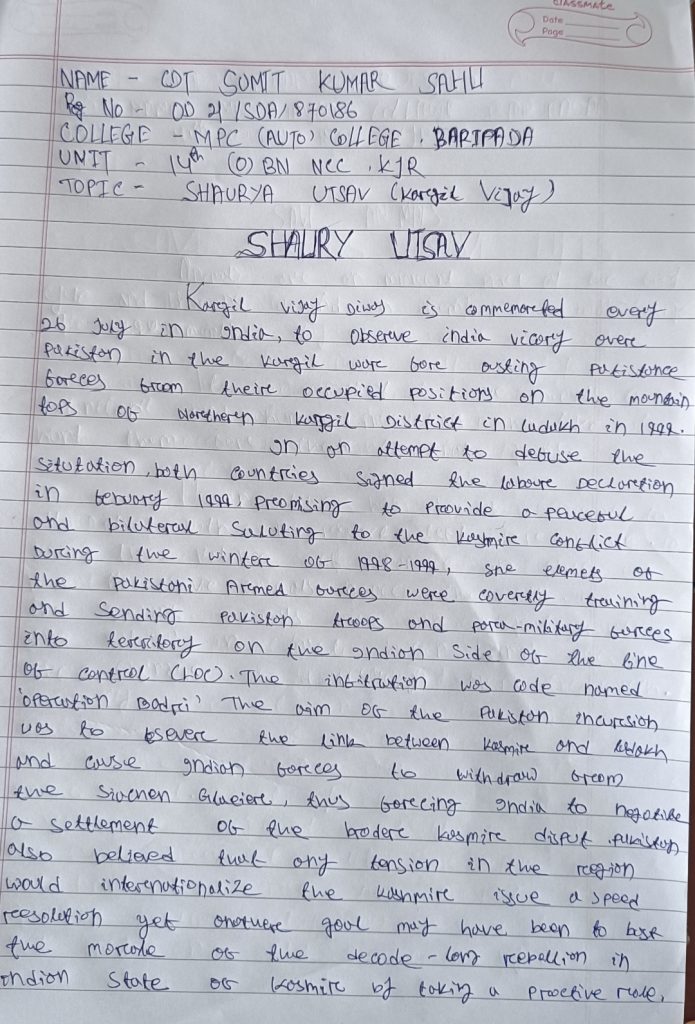 CLASSMATE
Date
Page
NAME - CDT SUMIT KUMAR SAHU
Reg No - OD 21/SDA/870186
COLLEGE - MPC (AUTO) COLLEGE, BARIPADA
UNIT - 14th (O) BN NCC, KJR
TOPIC - SHAURYA UTSAV (Kargil Vijay)
SHAURY UTSAV
Kargil vijay Diwas is commemorated every
26 July in India, to observe india vicory overe
Pakistan in the kargil ware fore ousting Pakistance
foreces from theire occupied positions on the mountain
tops of Noretheren kargil District in ladakh in 1999.
In an attempt to defuse the
situtation, both countries signed the lahore Declaretion
in febuary 1999, promising to preovide a peaceful
and bilateral saluting to the kasmire conflict
During the wintere of 1998-1999, sne elemets of
the pakistani Aremed foreces were covertly training
and sending Pakistan troops and para-military foreces
into teresitory on the Indian side of the line
of control (LOC). The infitration was code named
'operation Badri' The aim of the Pakistan incursion
was to severe the link between kasmire and
and cause Indian foreces to withdraw from
the Siachen Glaciere, thus forecing India to negotike
a settlement of the brodere kasmire disput. Pakistan
also believed that any tension in the region
would internationalize the kashmire issue a speed
reesolution yet anothere goal may have been to
the morale of the decade-long rebellion in
Indian State of kasmire by taking a proective role,